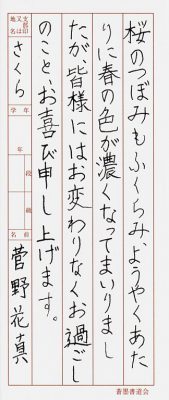 桜のつぼみもふくらみ、ようやくあた
りに春の色が濃くなってまいりまし
たが、皆様にはお変わりなくお過ごし
のこと、お喜び申し上げます。
支部印又は地名
さくら
学年
年
段級
名前
菅野花真
書墨書道会